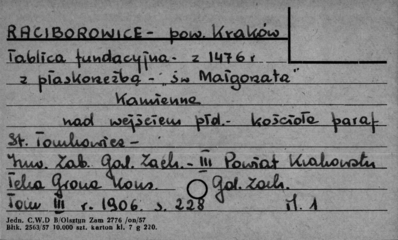 RACIBOROWICE - pow. Kraków
Tablica fundacyjna - z 1476 r
z płaskorzeźbą - "św Małgorzata"
Kamienna
nad wejściem płd. - kościoła paraf
St. Tomkowicz -
Inw. Zab. Gal. Zach. - III Powiat Krakowski
Teka Grona Kons. Gal. Zach.
Tom III r. 1906. s. 228 il. 1
Jedn. C.W.D B/Olsztyn Zam 2776 /on/57
Bltk. 2563/57 10.000 szt. karton kl. 7 g 220.